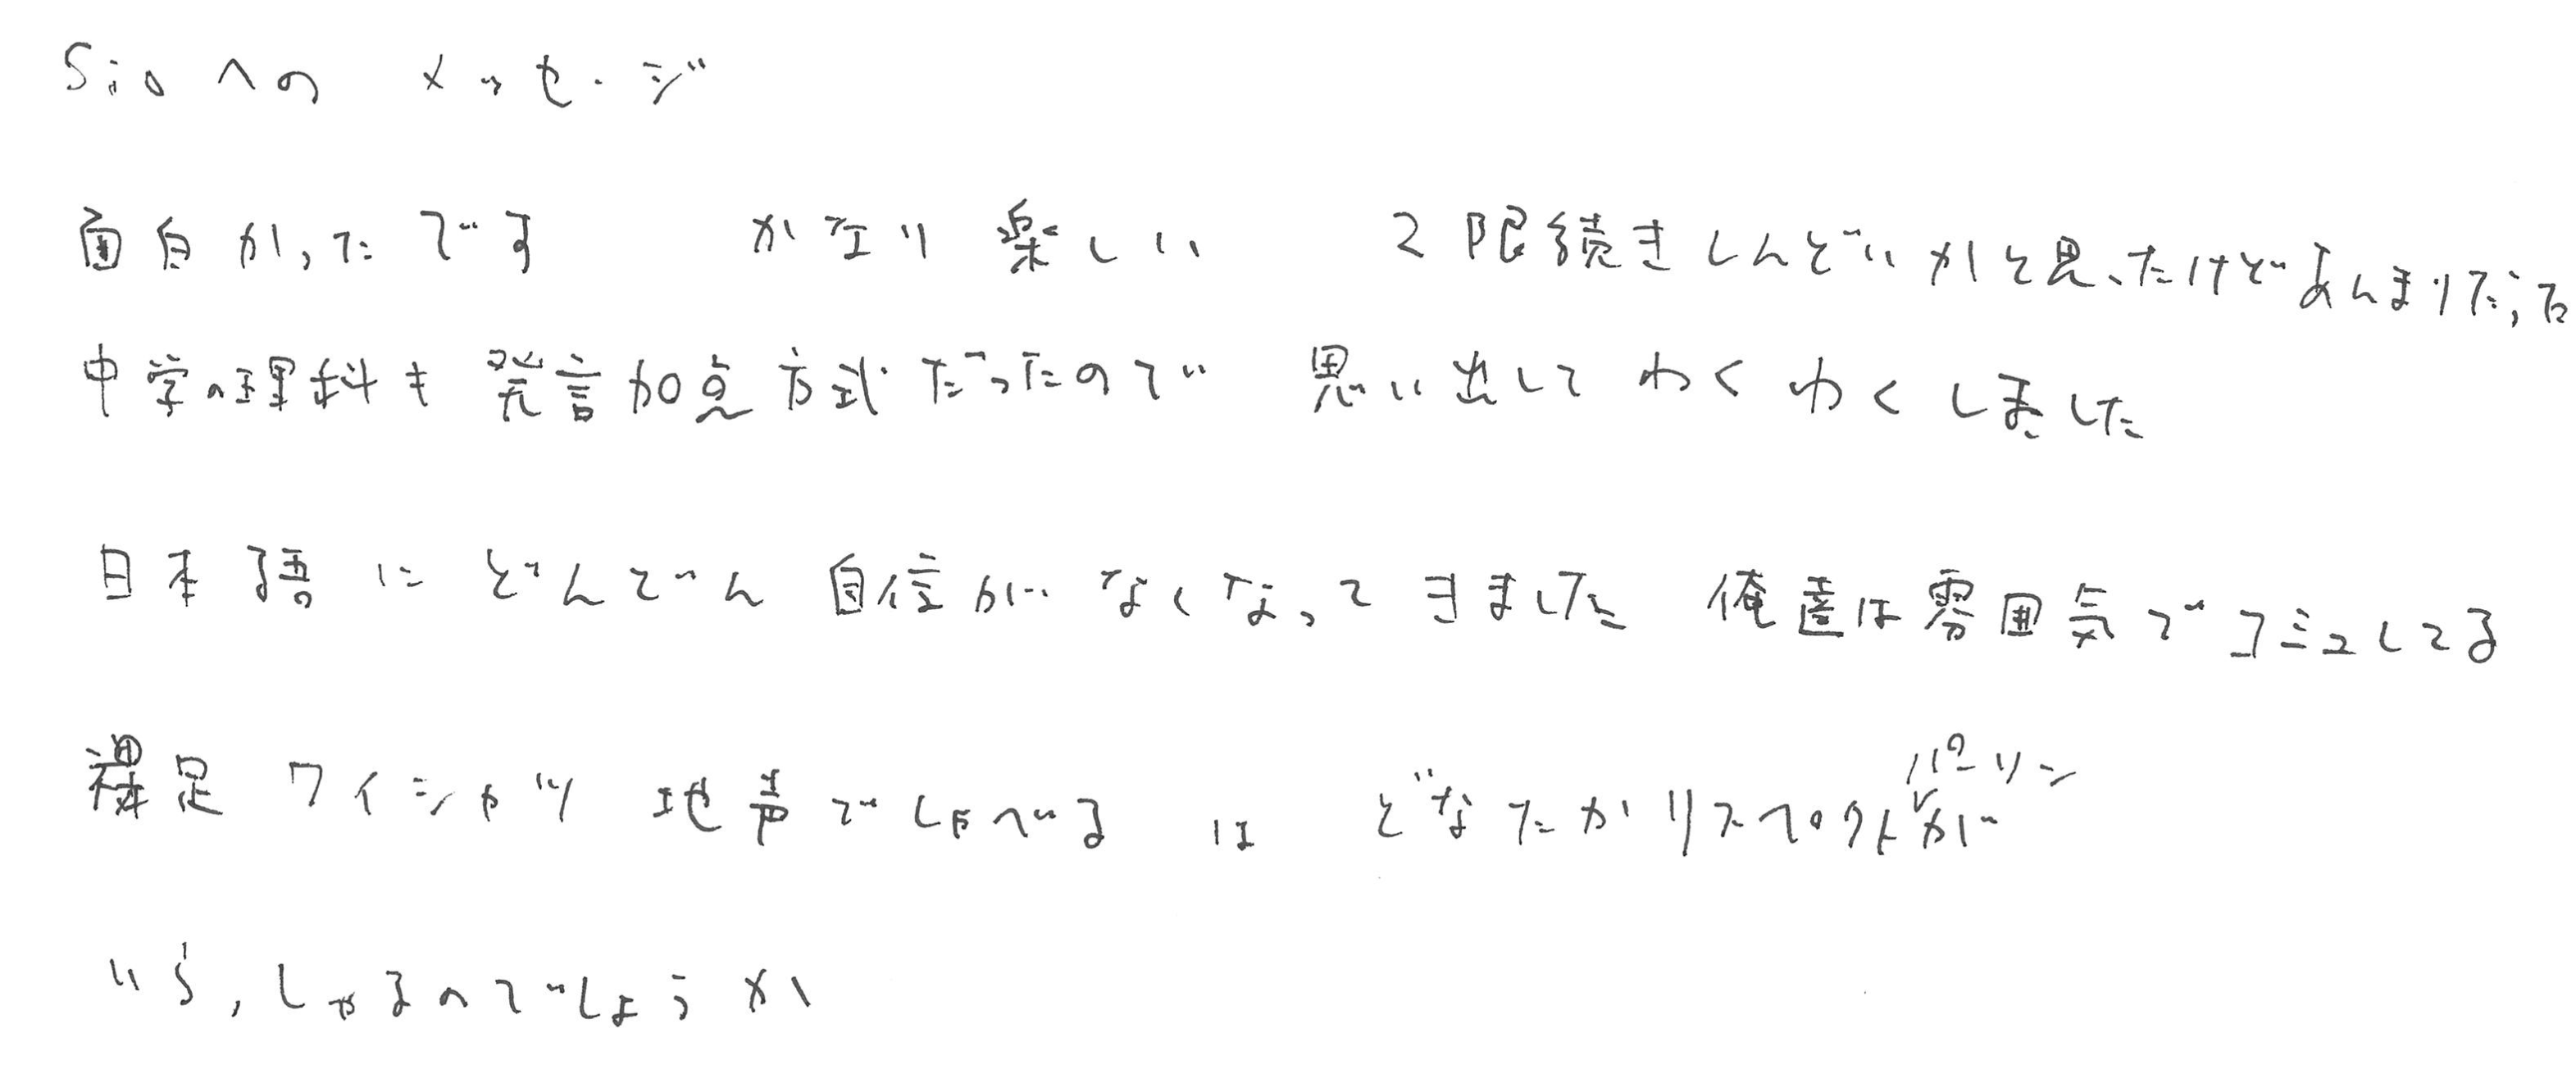 Sioへの メッセージ
面白かったです かなり楽しい 2限続きしんどいかと思ったけどあんまりだった
中学の理科も発言加点方式だったので 思い出してわくわくしました
日本語にどんどん自信がなくなってきました 俺達は雰囲気でコミュしてる
裸足 ワイシャツ 地声でしゃべる は どなたかリスペクトパソリンが
いらっしゃるのでしょうか